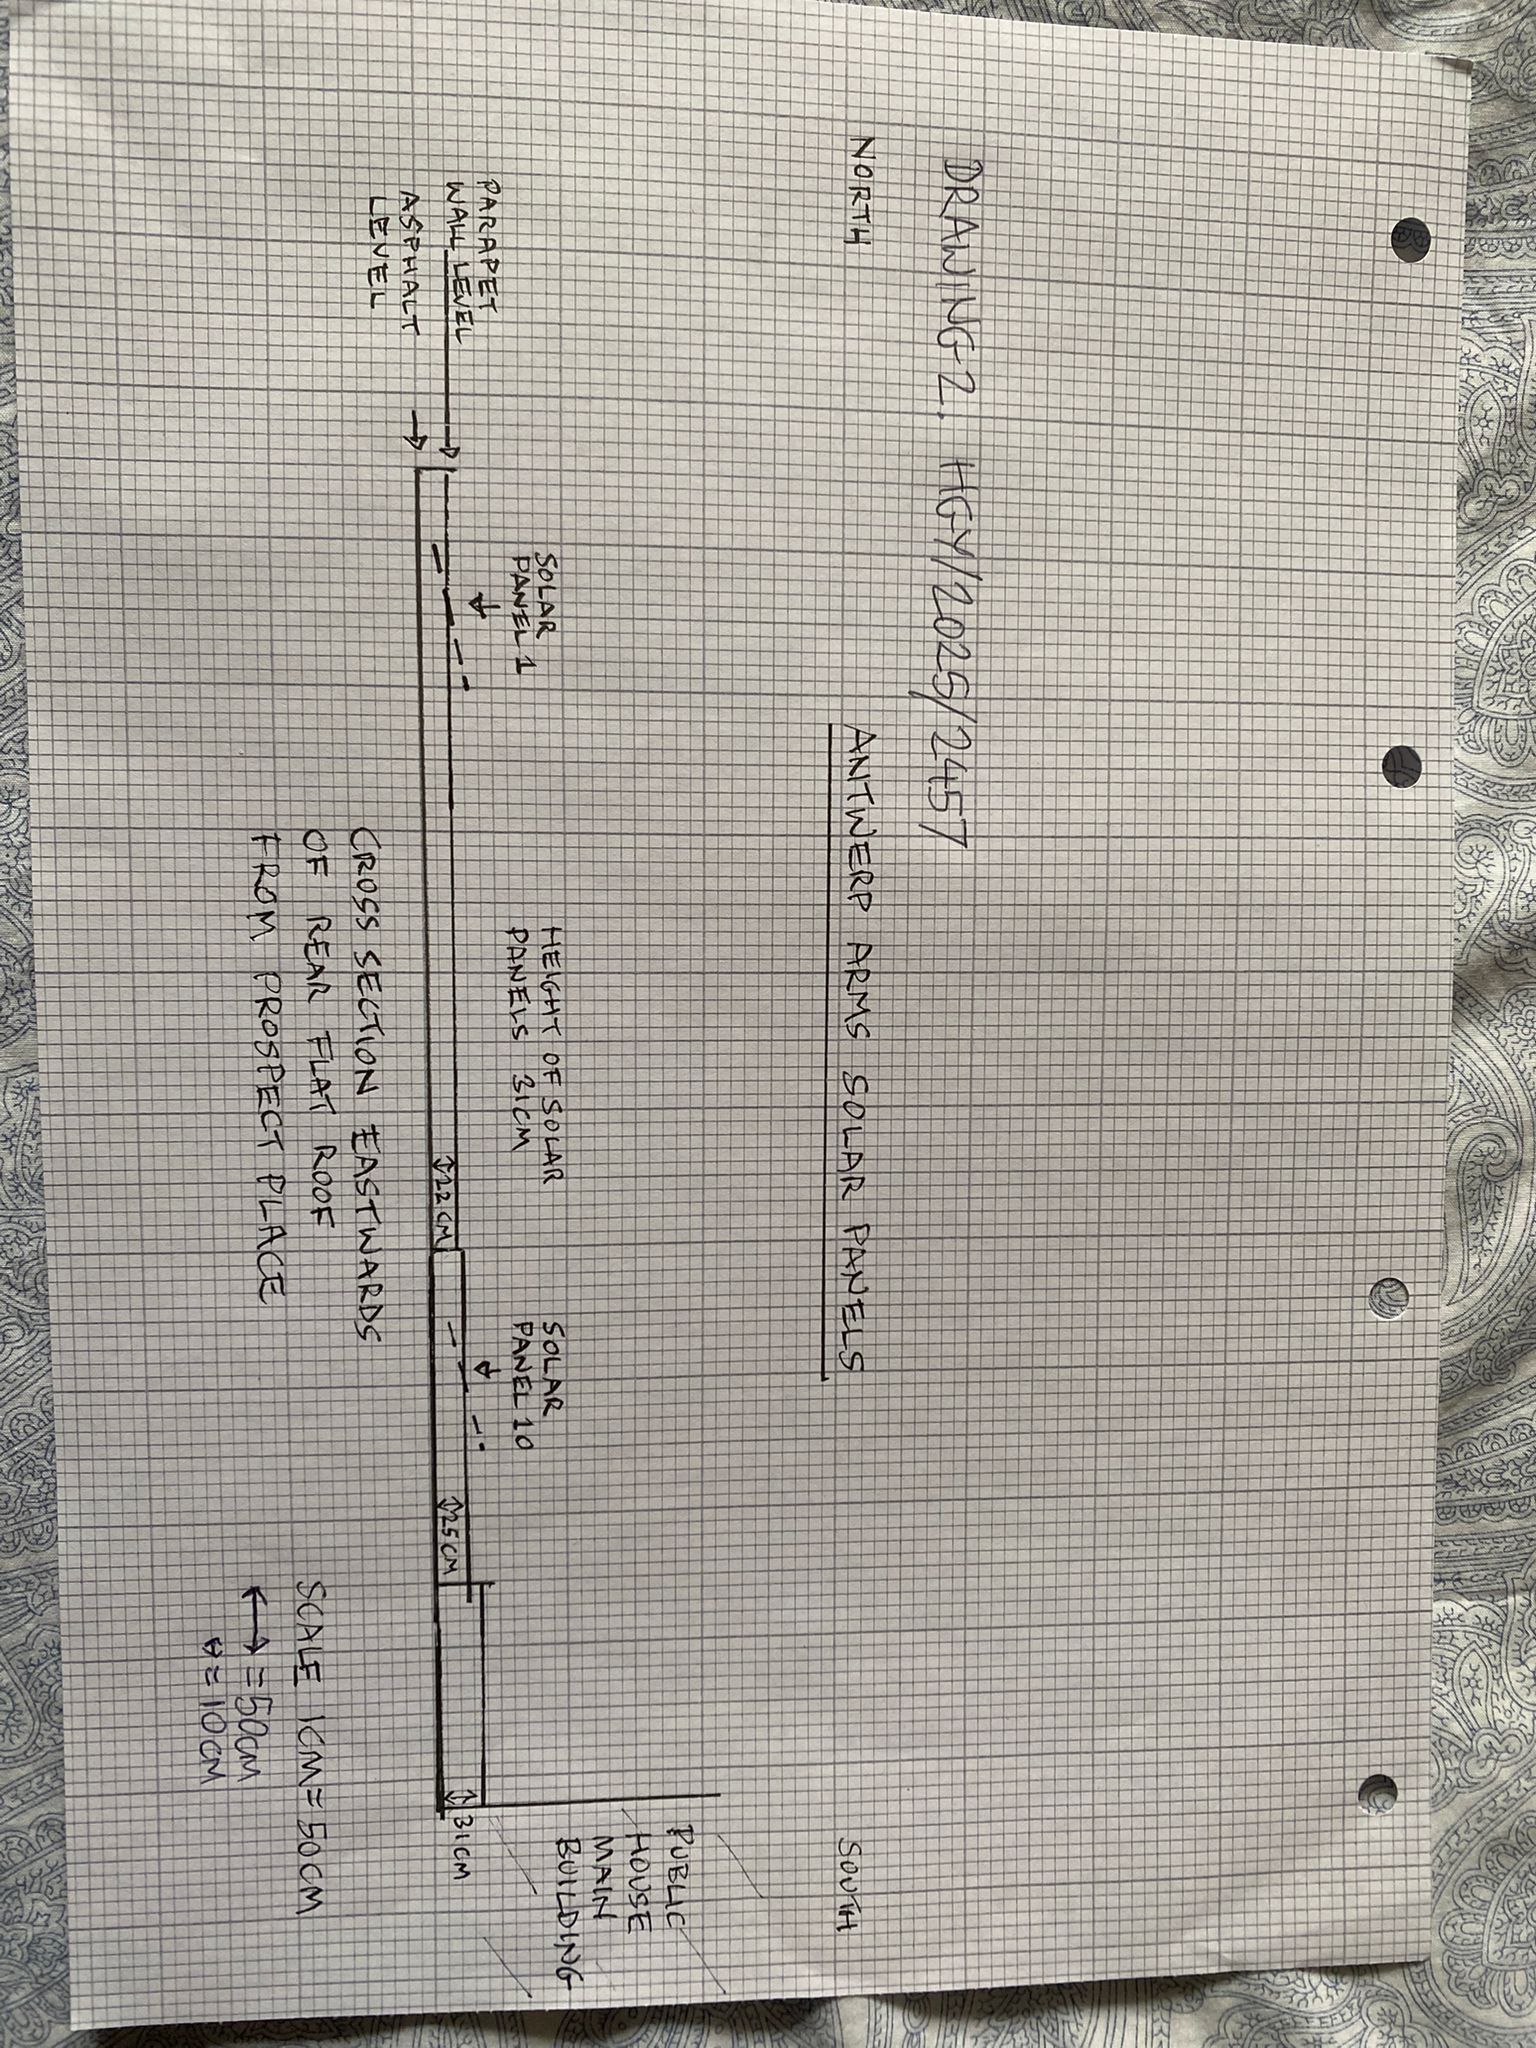 DRAWING-2. HGY/2025/2457
NORTH
ANTWERP ARMS SOLAR PANELS
SOUTH
PARAPET
WALL LEVEL
ASPHALT
LEVEL
SOLAR
PANEL 1
HEIGHT OF SOLAR
PANELS 31CM
SOLAR
PANEL 10
PUBLIC
HOUSE
MAIN
BUILDING
22CM
25CM
31CM
CROSS SECTION EASTWARDS
OF REAR FLAT ROOF
FROM PROSPECT PLACE
SCALE 1CM = 50CM
↔ = 50CM
↔ = 10CM